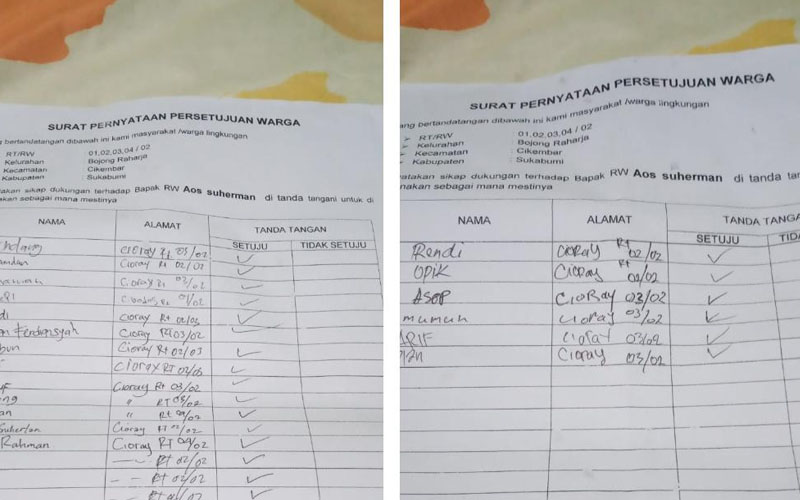 SURAT PERNYATAAN PERSETUJUAN WARGA
ng bertandatangan dibawah ini kami masyarakat /warga lingkungan
RT/RW : 01,02,03,04 / 02
Kelurahan : Bojong Raharja
Kecamatan : Cikembar
Kabupaten : Sukabumi
takan sikap dukungan terhadap Bapak RW Aos suherman di tanda tangani untuk di
akan sebagai mana mestinya
NAMA ALAMAT TANDA TANGAN
SETUJU TIDAK SETUJU
Cioray Rt 03/02
Cioray Rt 02/02
Cioray
di Cioray Rt
n Ferdiansyah Cioray Rt 03/02
bun Cioray RT 02/03
Cioray RT
Cioray Rt 03/02
ng " RT
an " Rt
Suherlan Cioray Rt
Rahman Cioray RT
Rt 02/02
Rt 02/02
SURAT PERNYATAAN PERSETUJUAN WARGA
ang bertandatangan dibawah ini kami masyarakat /warga lingkungan
➢ RT/RW : 01,02,03,04 / 02
➢ Kelurahan : Bojong Raharja
➢ Kecamatan : Cikembar
➢ Kabupaten : Sukabumi
yatakan sikap dukungan terhadap Bapak RW Aos suherman di tanda tan
nakan sebagai mana mestinya
NAMA ALAMAT TANDA TANGA
SETUJU TID
Rendi Cioray Rt 02/02
OPIK Cioray Rt 02/02
ASEP CioRay 03/02
mumuh Cioray 03/02
ARIF Cioray 03/02
Cioray 03/02